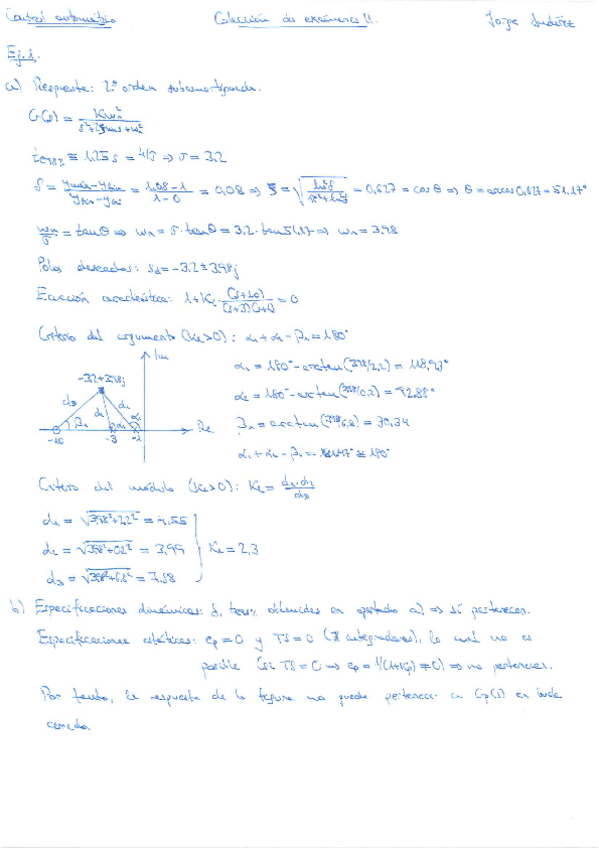 Control automático
Colección de exámenes 11.
Jorge
Ej.1.
a) Respuesta: 2º orden subamortiguada.
G(s) = Kωn² / s²+2ξωns+ωn²
≅ 1,25 s = 4/σ ⇒ σ = 3,2
δ = ymáx-yfin / yfin-yini = 1,08-1 / 1-0 = 0,08 ⇒ ξ = √(ln²δ / π²+ln²δ) = 0,627 = cos θ ⇒ θ = arcos 0,627 = 51,17°
ωn/σ = tan θ ⇒ ωn = σ·tan θ = 3,2·tan 51,17 ⇒ ωn = 3,98
Polos deseados: sd = -3,2 ± 3,98j
Ecuación característica: 1+Kc·(s+10)/(s+3)(s+1) = 0
Criterio del argumento (Kc>0): α1+α2-β1 = 180°
Im
-3,2+3,98j
d3
d2
d1
β1
α2
α1
-10
-3
-1
Re
α1 = 180° - arctan(3,98/2,2) = 118,93°
α2 = 180° - arctan(3,98/0,2) = 92,88°
β1 = arctan(3,98/6,8) = 30,34
α1+α2-β1 = ≅ 180°
Criterio del módulo (Kc>0): Kc = d1·d2 / d3
d1 = √3,98²+2,2² = 4,55
d2 = √3,98²+0,2² = 3,99
d3 = √3,98²+6,8² = 7,88
Kc = 2,3
b) Especificaciones dinámicas: δ, obtenidas en apartado a) ⇒ sí pertenecen.
Especificaciones estáticas: ep = 0 y TS = 0 (∄ integradores), lo cual no es
posible (si TS = 0 ⇒ ep = 1/(1+Kp) ≠ 0) ⇒ no pertenecen.
Por tanto, la respuesta de la figura no puede pertenecer a Gp(s) en bucle
cerrado.